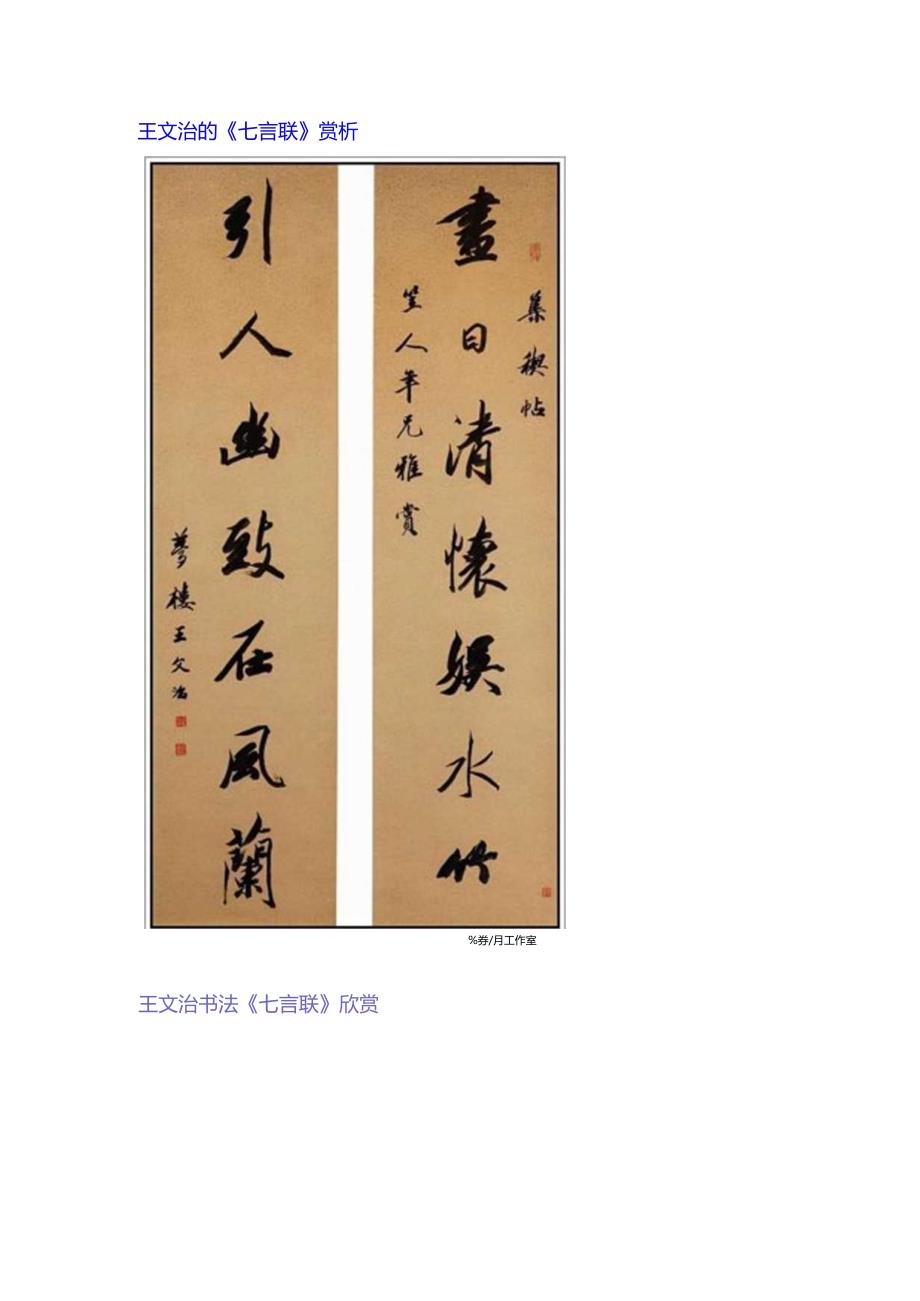 王文治的《七言联》赏析
集稧帖
盡日清懷娛水竹
笠人年兄雅賞
引人幽致在風蘭
夢樓王文治
%券/月工作室
王文治书法《七言联》欣赏